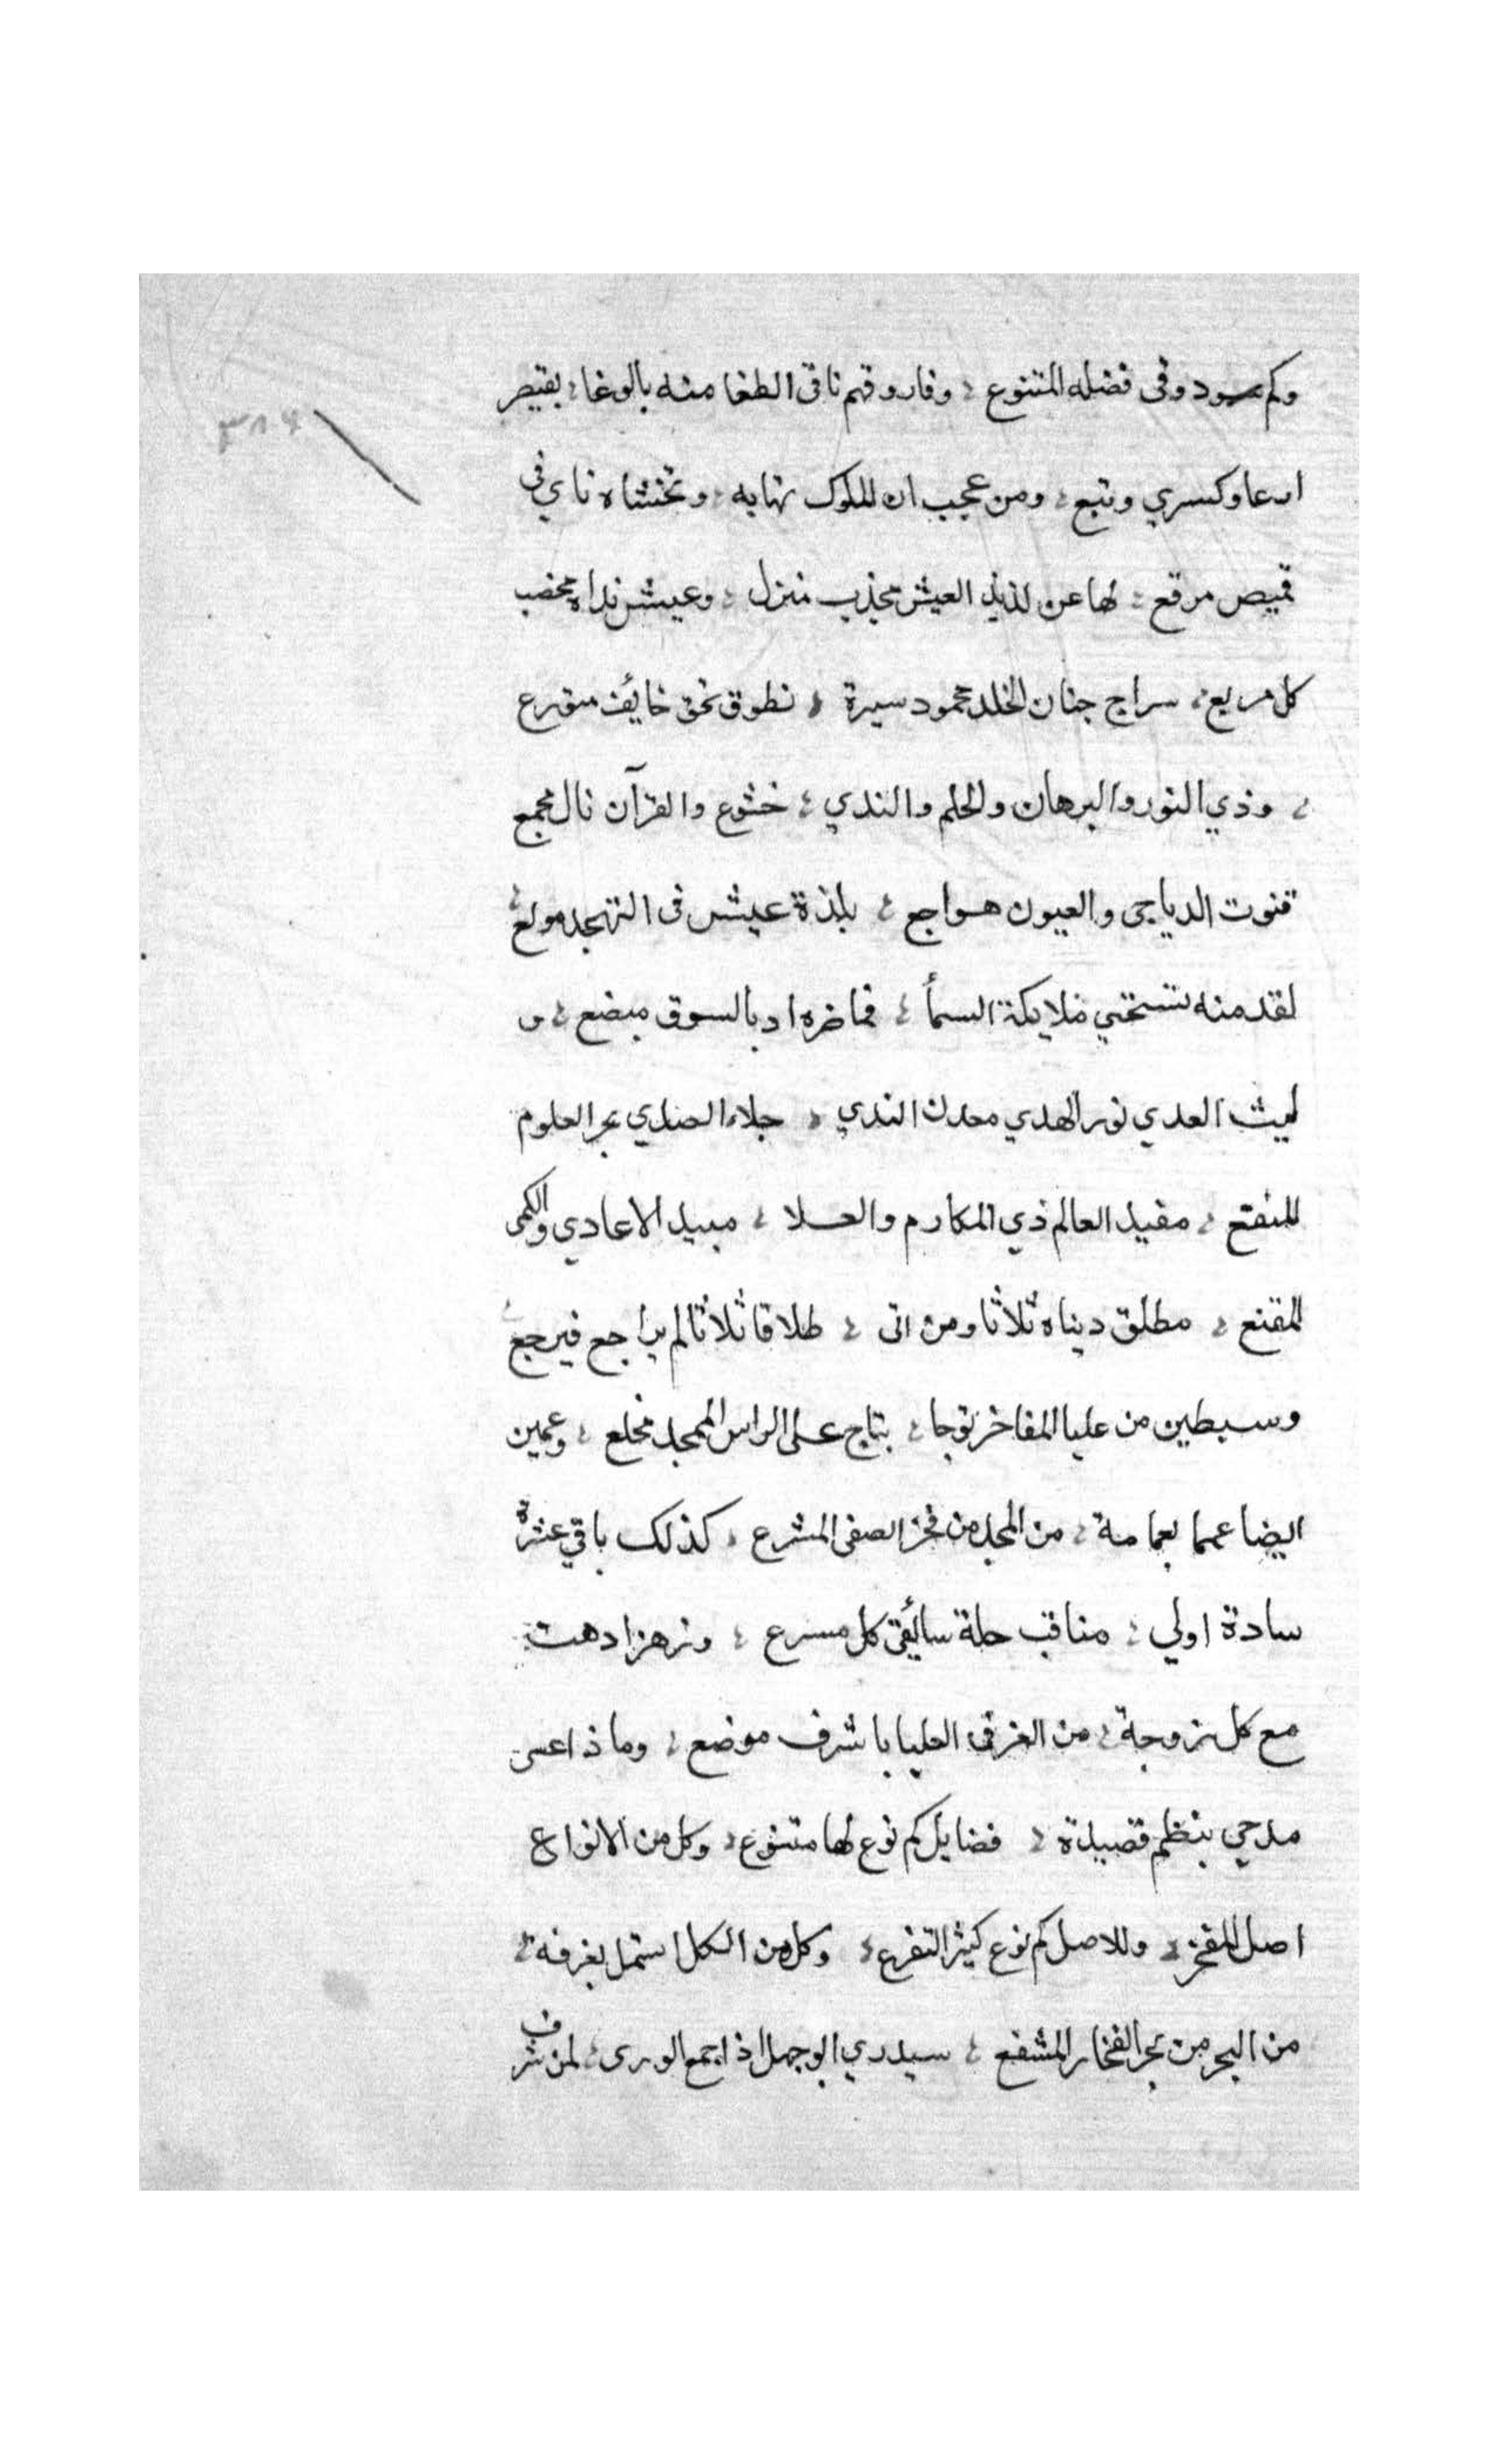 وكم سودوفى فضله المتنوع ؛ وفاروقهم نافى الطغا منه بالوغا ؛ بقيصر
وكسري وتبع ؛ ومن عجيب ان الملوك تهابه ؛ وتخشاه ناي فى
قميص مرقع ؛ لها عن لذيذ العيش مجذب منزل ؛ وعيش نداه مخضب
كل مربع ؛ سراج جنان الخلد محمود سيرة ؛ نطوق تحق خايف متورع
؛ وذي النور والبرهان والحلم والندي ؛ خشوع والقرآن نال مجمع
قنوت الدياجى والعيون هواجع ؛ بلذة عيش فى التهجد مولع ؛
لقد منه تستحي ملايكة السمأ ؛ فما ضره اد بالسوق مبضع ؛ و
ليث العدي نور الهدي معدن الندي ؛ جلاء الصدي بحر العلوم
المنفتح ؛ مفيد العالم ذي المكارم والعلا ؛ مبيد الاعادي والكمى
المقنع ؛ مطلق دنياه ثلاثا ومن اتى ؛ طلاقا ثلاثا لم يراجع فيرجع ؛
وسبطين من عليا المفاخر توجا ؛ بتاج على الراس الممجد مخلع ؛ وعمين
ايضا عمما بعمامة ؛ من المجد من فخر الصفى المشرع ؛ كذلك باقي عشرة
سادة اولي ؛ مناقب حلة سائق كل مسرع ؛ وزهرا دهت
مع كل زوجة ؛ من الغرف العليا باشرف موضع ؛ وماذا عسى
مدحي بنظم قصيدة ؛ فضايل كم نوع لها متنوع ؛ وكل من الانواع
اصل المفخر ؛ وللاصل كم نوع كثير التفرع ؛ وكل من الكل استمل بغرفة ؛
من البحر من بحر الفخار المشفع ؛ سيدري ابو جهل اذا جمع الورى ؛ لمن شرف